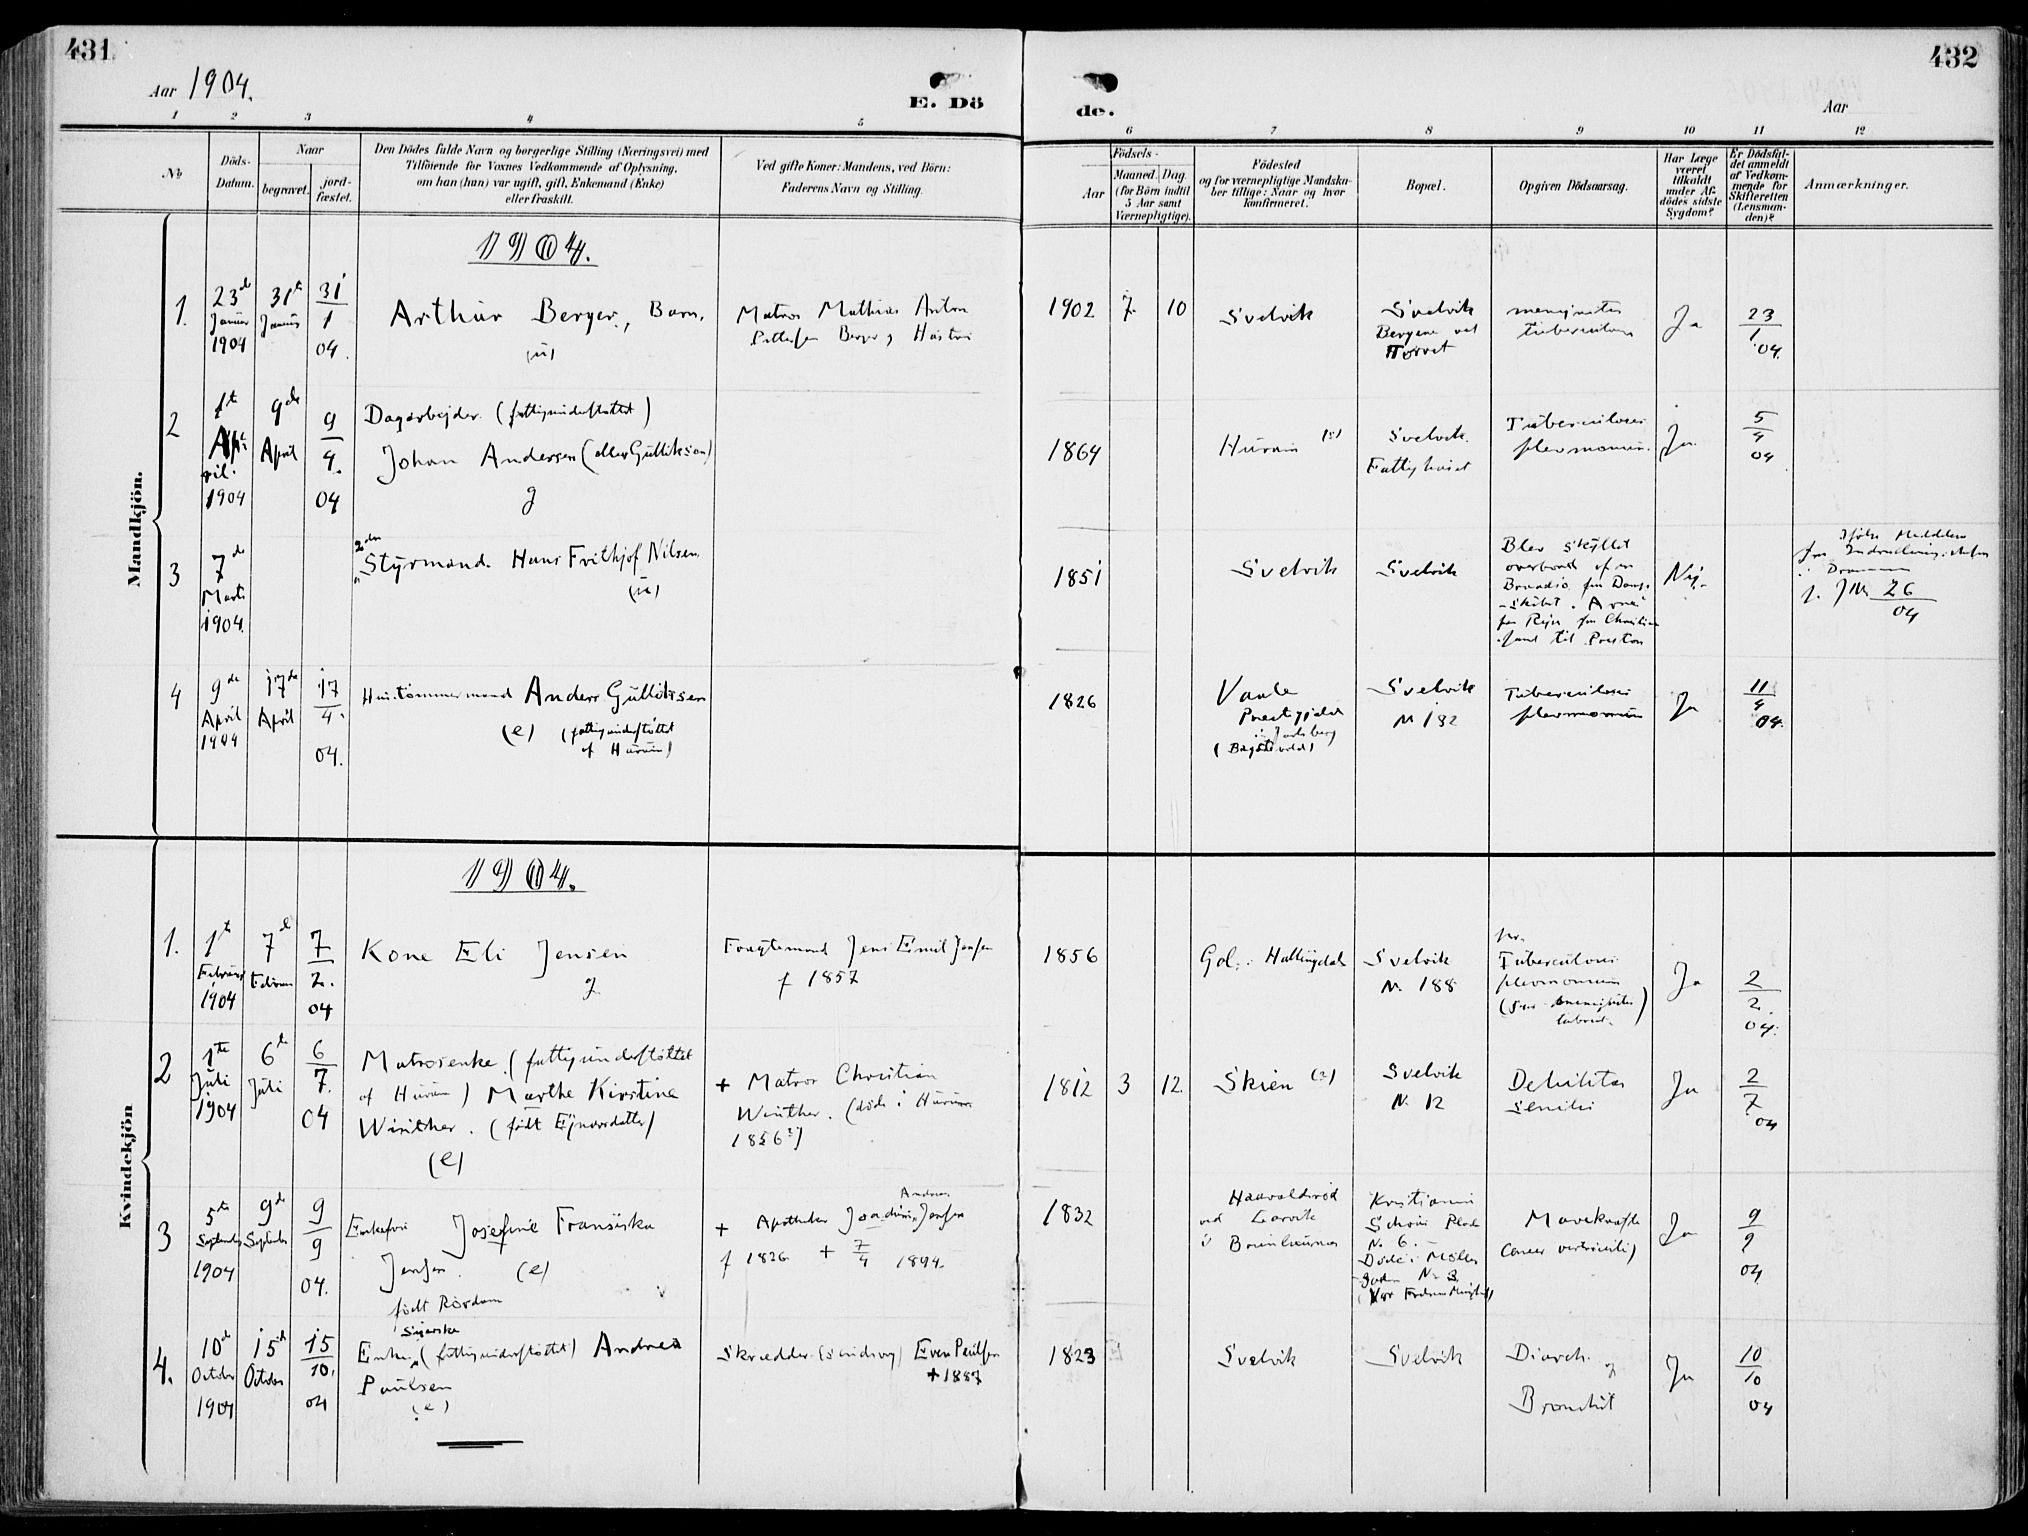 431
Aar 1904.
E. Dö
1 2 3 4 5
No
Döds-
Datum.
Naar
begravet.
jord-
fæstet.
Den Dödes fulde Navn og borgerlige Stilling (Næringsvei) med
Tilföiende for Voxnes Vedkommende af Oplysning,
om han (hun) var ugift, gift, Enkemand (Enke)
eller fraskilt.
Ved gifte Koner: Mandens, ved Börn:
Faderens Navn og Stilling.
Mandkjön.
1904.
1.
23de
Januar
1904
31te
Januar
31
1
04.
Arthur Berger, Barn.
(u)
Matros Mathias Anton
Pettersen Berger og Hustru
2
1te
April.
1904
9de
April
9
4.
04
Dagarbejder. (fattigunderstøttet)
Johan Andersen (eller Gulliksen)
g
3
7de
Marts
1904.
2den
Styrmand. Hans Frithjof Nilsen.
(u)
4
9de
April
1904
17de
April
17
4.
04.
Hustømmermand Anders Gulliksen
(e) (fattigunderstøttet
af Hurum)
Kvindekjön
1904.
1.
1te
Februar
1904
7de
Februar
7
2.
04
Kone Eli Jensen
g
Jens Emil Jensen
f 1857
2
1te
Juli
1904
6te
Juli
6
7.
04
Matrosenke. (fattigunderstøttet
af Hurum) Marthe Kirstine
Winther. (født Ejnarsdatter)
(e)
+ Matros Christian
Winther. (død i Hurum
1856?)
3
5te
September
1904
9de
September
9
9
04.
Enkefru Josefine Fransiska
Jensen. (e)
født Rördam
Andreas
+ Apotheker Joachim Jensen
f 1826 + 7
4 1894.
4.
10de
October
1904
15de
October
15
10.
04
Enke (fattigunderstøttet) Andrea
Paulsen
(e)
Skrædder Even Paulsen
+ 1887
432
de.
Aar
6 7 8 9 10 11 12
Födsels-
Aar
Maaned. Dag.
(for Börn indtil
5 Aar samt
Værnepligtige).
Födested
og for værnepligtige Mandska-
ber tillige: Naar og hvor
konfirmeret.
Bopæl.
Opgiven Dödsaarsag.
Har Læge
været
tilkaldt
under Af-
dödes sidste
Sygdom?
Er Dödsfal-
det anmeldt
af Vedkom-
mende for
Skifteretten
(Lensman-
den)?
Anmærkninger.
1902 7. 10
Svelvik
Svelvik
Bergene ved
Torvet
meningitis
tuberculosa
Ja
23
1
04.
1864
Hurum (?)
Svelvik.
Fattighuset
Tuberculosis
plevmonum.
Ja.
5
4
04
1851
Svelvik
Svelvik
Blev skyllet
overbord af en
Bradsø fra Damp-
-skibet. Arne
paa Rejse fra Christian-
-sund til Preston
Nej.
Ifølge Meddelelse
i Drammen
f. JNr 26
04
1826
Vaale
Præstegjeld
i Jarlsberg
Svelvik
No 182
Tuberculosis
plevmonum
Ja
11
4
04.
1856
Gol. Hallingdal
Svelvik
No. 188
Tuberculosis
plevmonum
Ja
2
2.
04.
1812 3 12
Skien (?)
Svelvik
No. 12
Debilitas
senilis
Ja
2
7
04
1832
ved Larvik
i Brunlanes
Kristiania
No 6.
Død i Møller
-gaden No 3.
Mavekræft
Cancer ventriculi
Ja
9
9
04
1823
Svelvik
Svelvik
Diarrh.
og
Bronchit
Ja
10
10
04